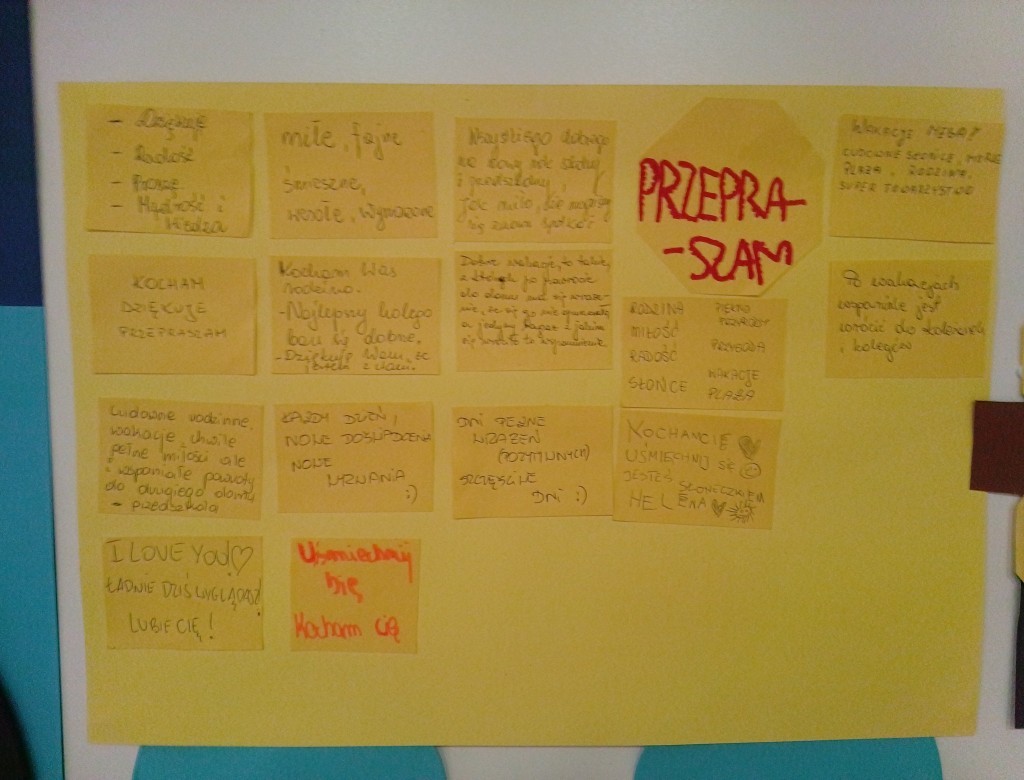 - Dziękuję
- Radość
- Proszę
- Mądrość i
Wiedza
miłe, fajne
śmieszne,
wesołe, wymarzone
Wszystkiego dobrego
na nowy rok szkolny
i przedszkolny,
jak miło, że możemy
się znowu spotkać
PRZEPRA-
-SZAM
WAKACJE
CUDOWNE SŁOŃCE, MORZE
PLAŻA, RODZINA,
SUPER TOWARZYSTWO
KOCHAM
DZIĘKUJE
PRZEPRASZAM
Kocham Was
rodzino.
-Najlepszy kolego
baw się dobrze.
-Dziękuję Wam, że
jesteście z nami.
Dobre wakacje, to takie,
z których po powrocie
do domu ma się wraże-
nie, że się go nie opuszczało
a jedyny bagaż z jakim
się wróciło to wspomnienie.
RODZINA
MIŁOŚĆ
RADOŚĆ
SŁOŃCE
PIĘKNO
PRZYRODY
PRZYGODA
WAKACJE
PLAŻA
Po wakacjach
wspaniale jest
wrócić do koleżanek
i kolegów
Cudowne rodzinne,
wakacje, chwile
pełne miłości ale
i wspaniałe powroty
do drugiego domu
- przedszkola
KAŻDY DZIEŃ,
NOWE DOŚWIADCZENIA
NOWE
WYZWANIA
:)
DNI PEŁNE
WRAŻEŃ
(POZYTYWNYCH)
SZCZĘŚLIWE
DNI :)
KOCHAM CIĘ
UŚMIECHNIJ SIĘ
JESTEŚ SŁONECZKIEM
HELENA
I LOVE YOU!
ŁADNIE DZIŚ WYGLĄDASZ!
LUBIE CIĘ!
Uśmiechnij
się
Kocham Cię